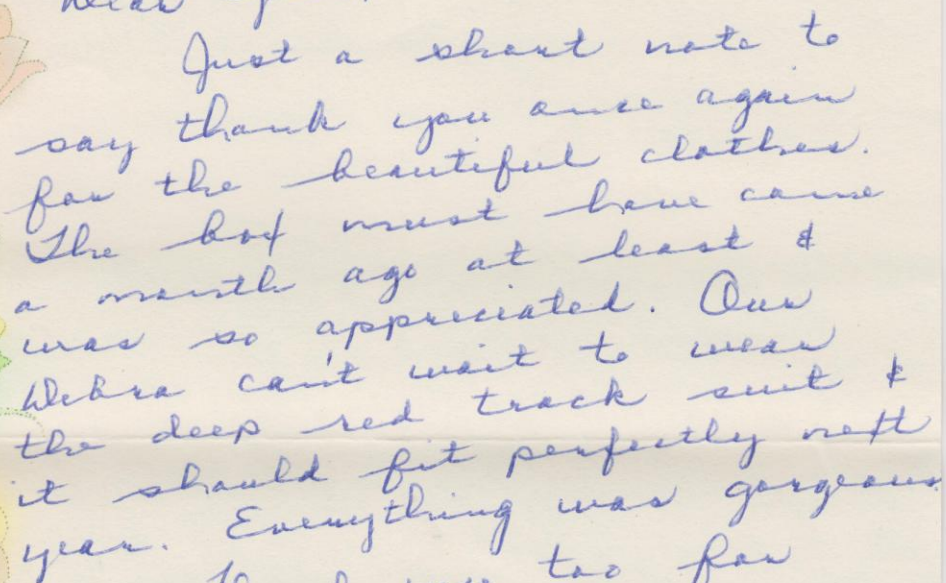 Dear
Just a short note to
say thank you once again
for the beautiful clothes.
The box must have came
a month ago at least &
was so appreciated. Our
Debra can't wait to wear
the deep red track suit &
it should fit perfectly next
year. Everything was gorgeous
too for